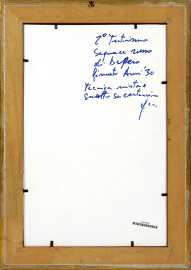 2° Futurismo
seguace russo
di Depero
firmato Anni '30
tecnica mista e
smalto su cartoncino